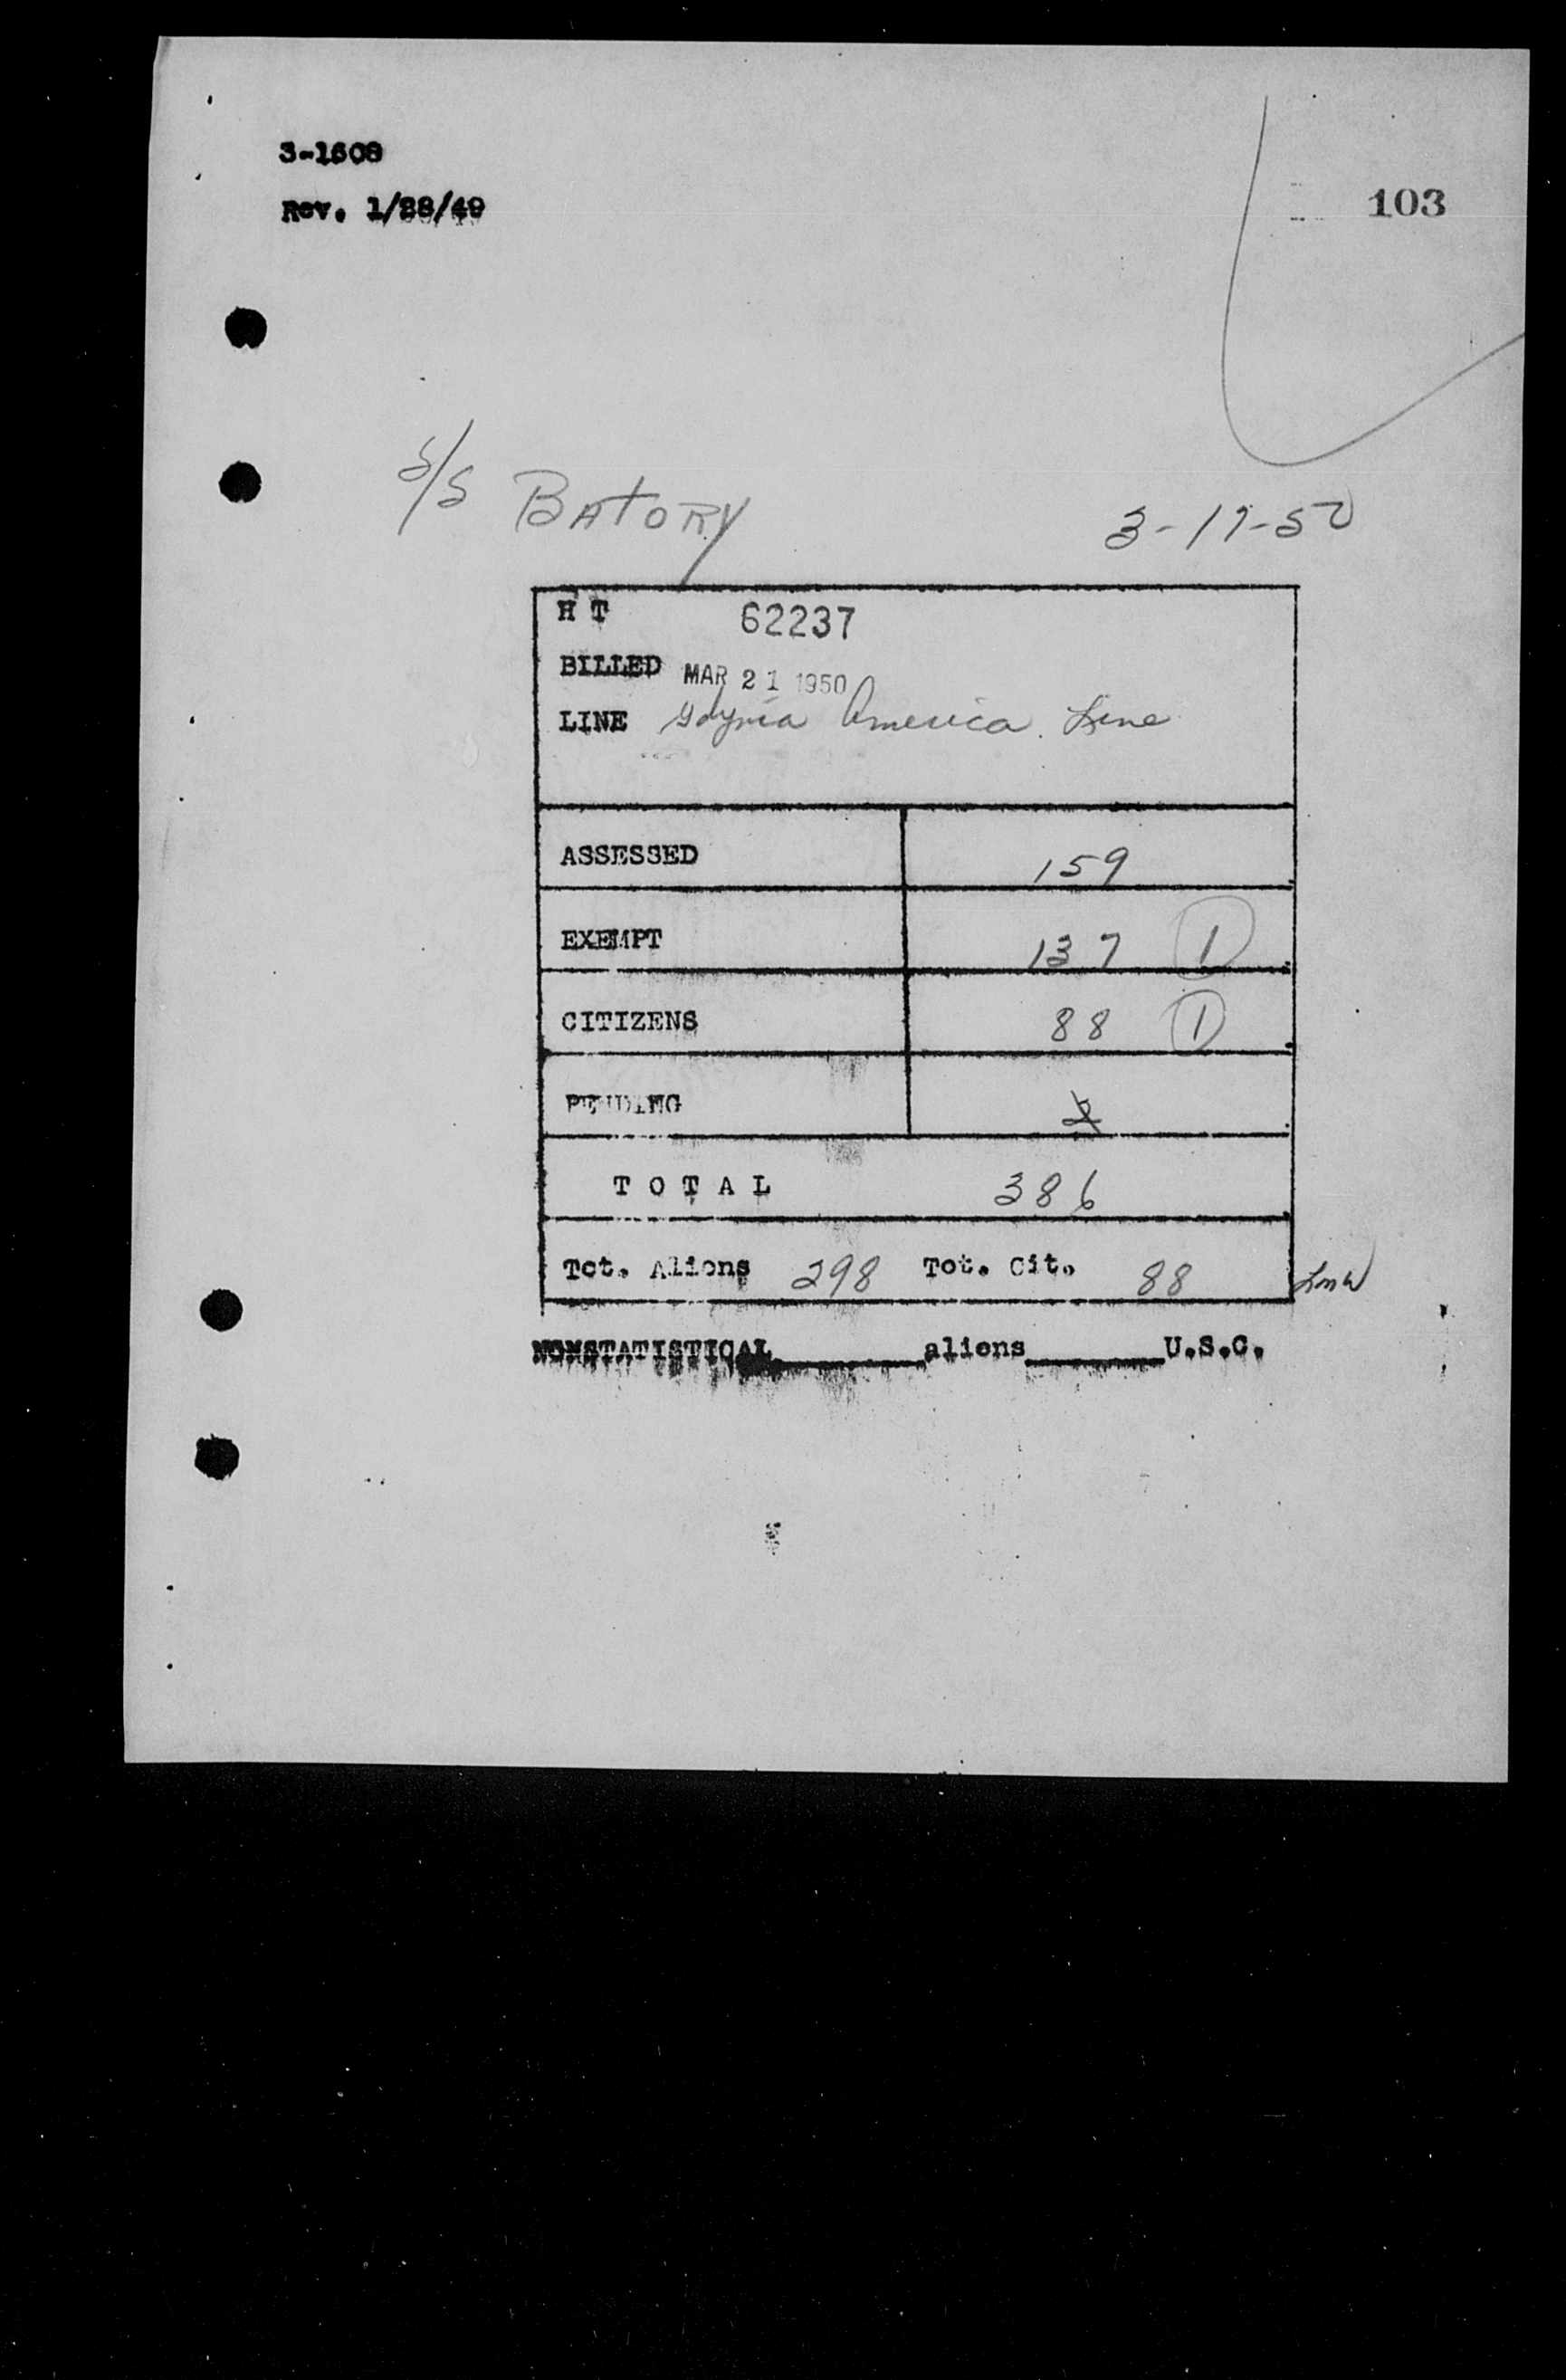 3-1608
Rev. 1/28/49
103
S/S BATORY
3-17-50
H T 62237
BILLED MAR 21 1950
LINE Gdynia America Line
ASSESSED 159
EXEMPT 137 1
CITIZENS 88 1
PENDING 2
TOTAL 386
Tot. Aliens 298 Tot. Cit. 88
NONSTATISTICAL aliens U.S.C.